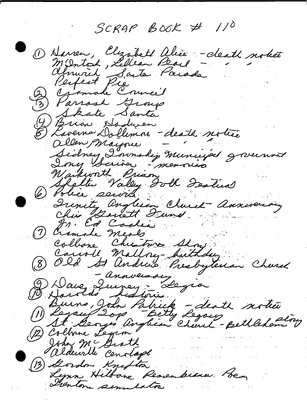 SCRAP BOOK # 110
① Haven, Elizabeth Alice - death notice
McIntosh, Lillian Pearl - " "
Norwich Santa Parade
Perfect Pie
② Cramahe Council
③ Parrott Group
Skate Santa
④ Brian
⑤ Laverna Dollimore - death notice
Allen Mayne - " "
Sidney Township Municipal government
Tony - memories
Warkworth Prison
Shelter Valley Folk Festival
⑥ Police service
Trinity Anglican Church - Anniversary
Chris Garrett Fund
Fr. Ed Cachia
⑦ Cramahe Meals
Colborne Christmas Show
Carroll Mallory - birthday
⑧ Old St Andrew's Presbyterian Church
- Anniversary
⑨ Daisy - Legion
⑩ Harolds
Burns, John Patrick - death notice
⑪ Legacy - Betty Legacy
St George Anglican Church - Bethlehem story
⑫ Colborne Legion
John McGrath
Alderville Cenotaph
⑬ Gordon
Lynn Remembrance Poem
Trenton simulator